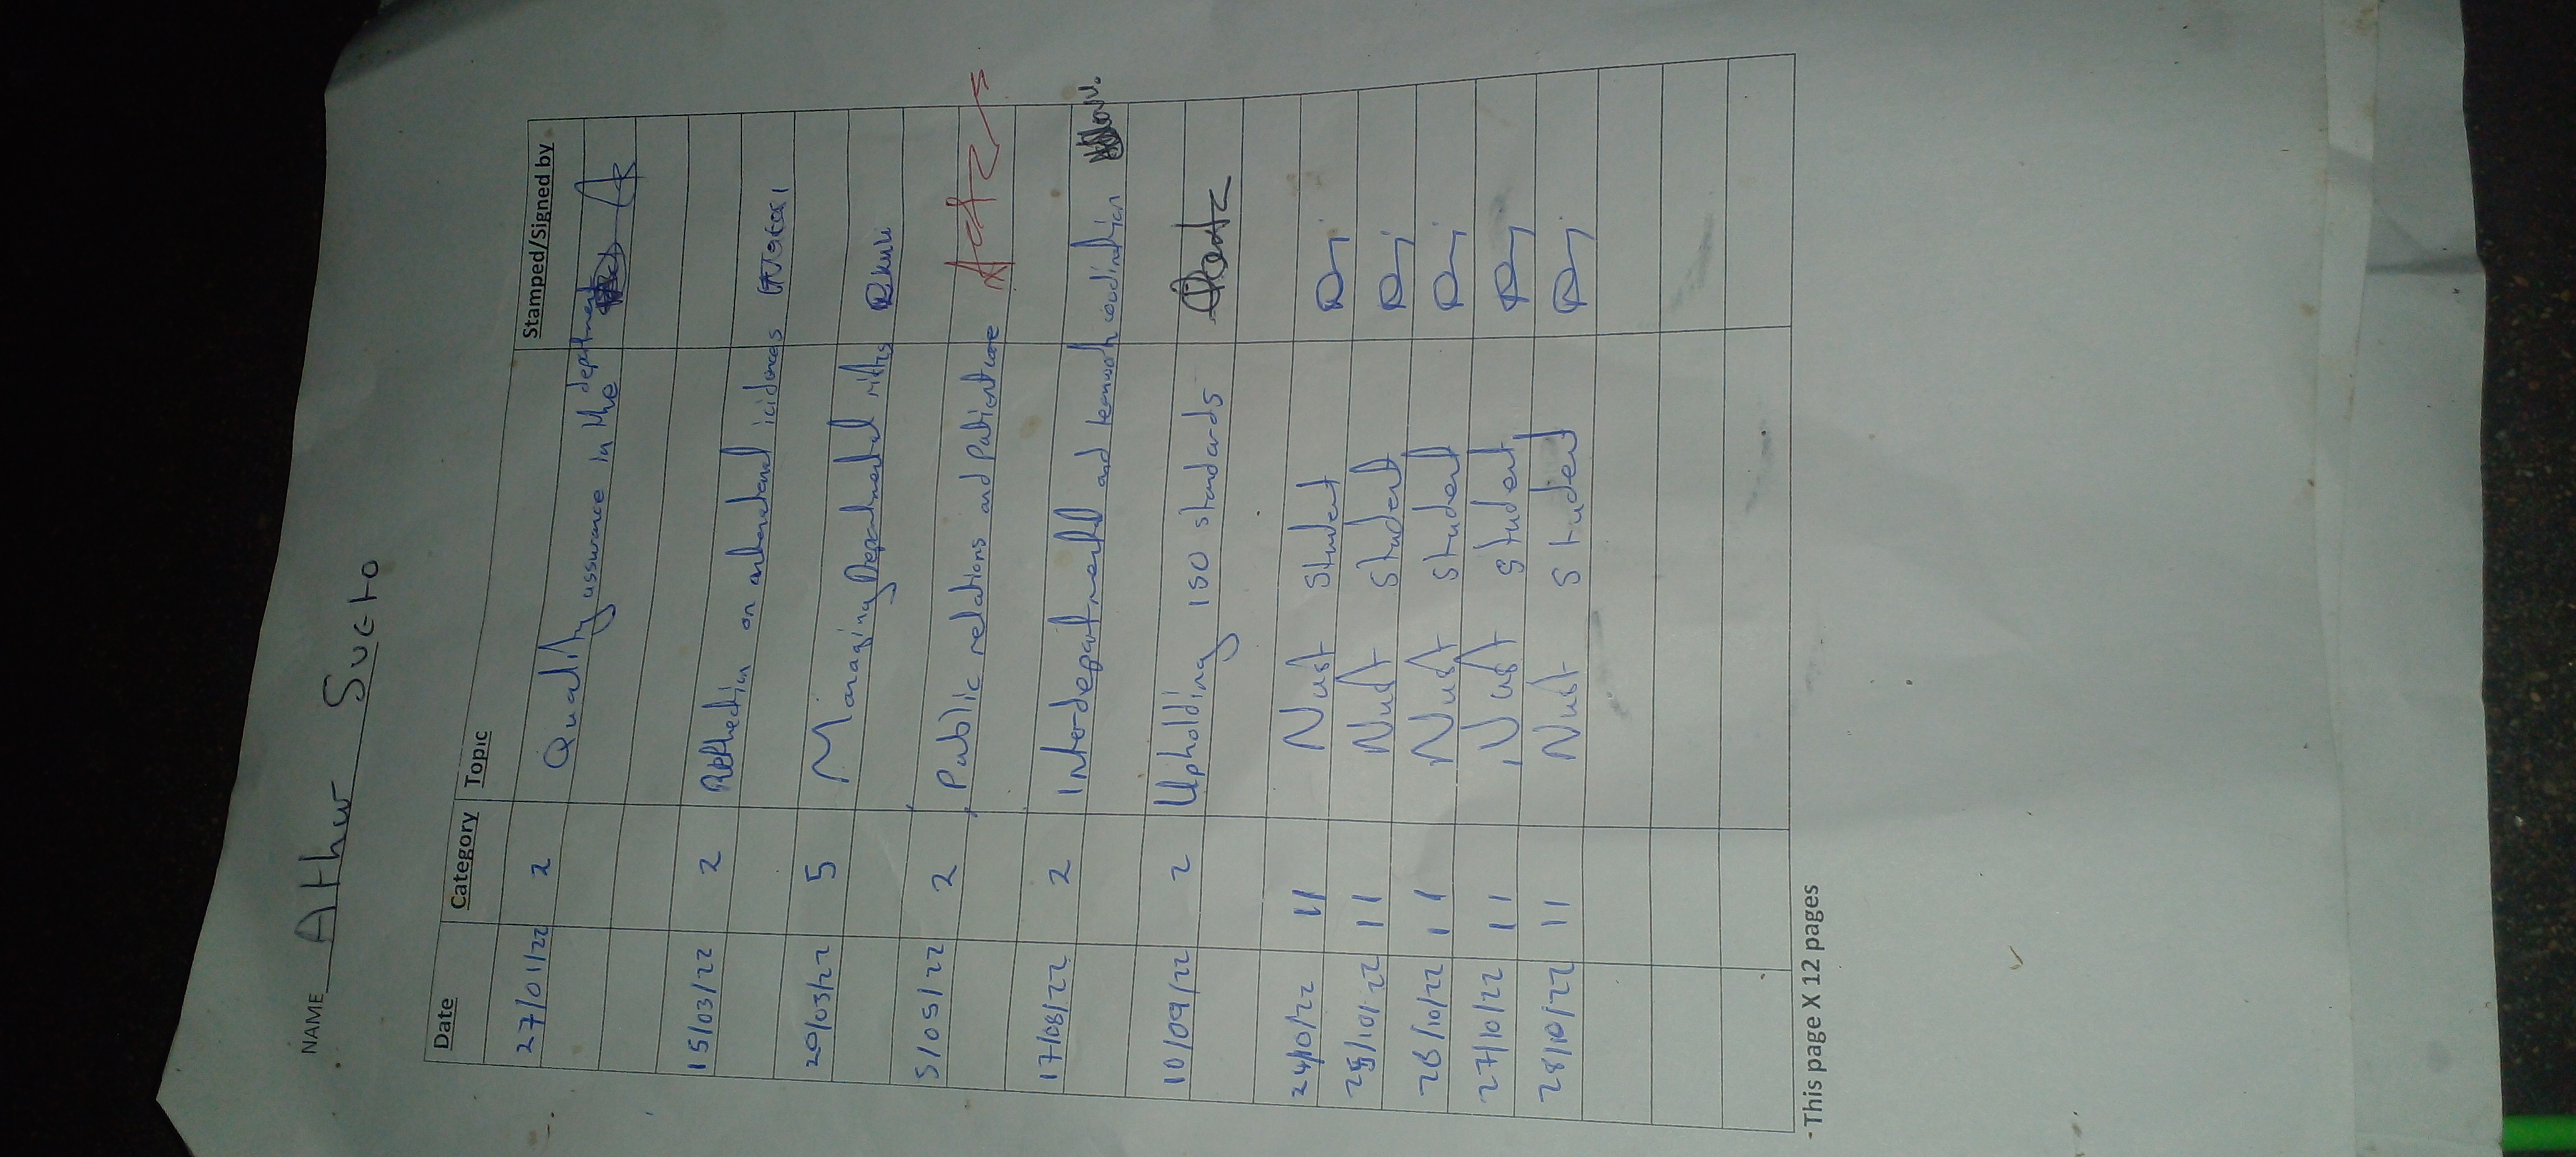 NAME Athur Sueto
Date Category Topic Stamped/Signed by
27/01/22 2 Quality assurance in the department
15/03/22 2 Reflection on icidences
20/03/22 5 Managing Departmental risks
5/05/22 2 Public relations and Patient care
17/08/22 2 Interdepartmental and teamwork coordination
10/09/22 2 Upholding ISO standards
24/10/22 11 Nust Student
25/10/22 11 Nust student
26/10/22 11 Nust student
27/10/22 11 Nust student
28/10/22 11 Nust Student
- This page X 12 pages